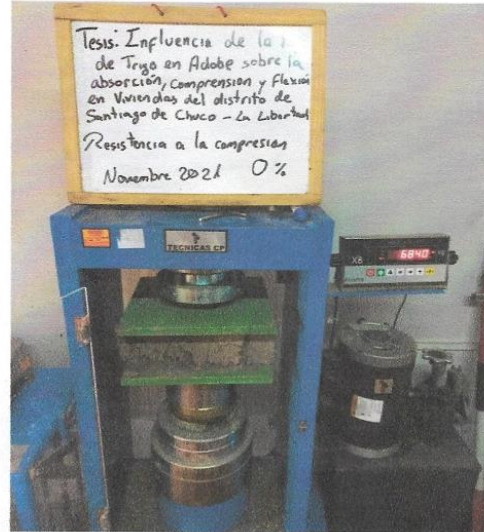 Tesis: Influencia de la
de Trigo en Adobe sobre la
absorción, Comprension y Flexión
en Viviendas del distrito de
Santiago de Chuco - La Libertad
Resistencia a la compresion
Novembre 2021 0 %
TECNICAS CP
X8
6840